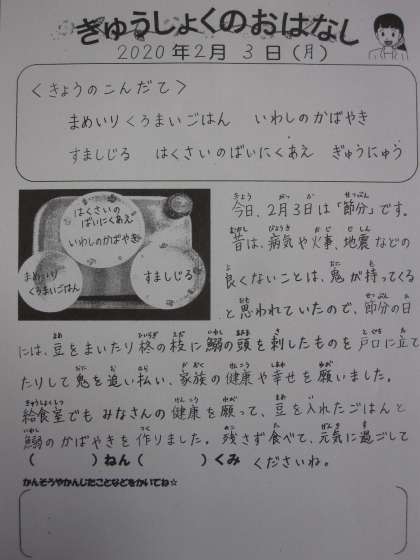 きゅうしょくのおはなし
2020年2月 3日(月)
〈きょうのこんだて〉
まめいりくろまいごはん いわしのかばやき
すましじる はくさいのばいにくあえ ぎゅうにゅう
はくさいの
ばいにくあえ
いわしのかばやき
まめいり
くろまいごはん
すましじる
今日、2月3日は「節分」です。
昔は、病気や火事、地震などの
良くないことは、鬼が持ってくる
と思われていたので、節分の日
には、豆をまいたり柊の枝に鰯の頭を刺したものを戸口に立て
たりして鬼を追い払い、家族の健康や幸せを願いました。
給食室でもみなさんの健康を願って、豆を入れたごはんと
鰯のかばやきを作りました。残さず食べて、元気に過ごして
( )ねん( )くみ くださいね。
かんそうやかんじたことなどをかいてね☆